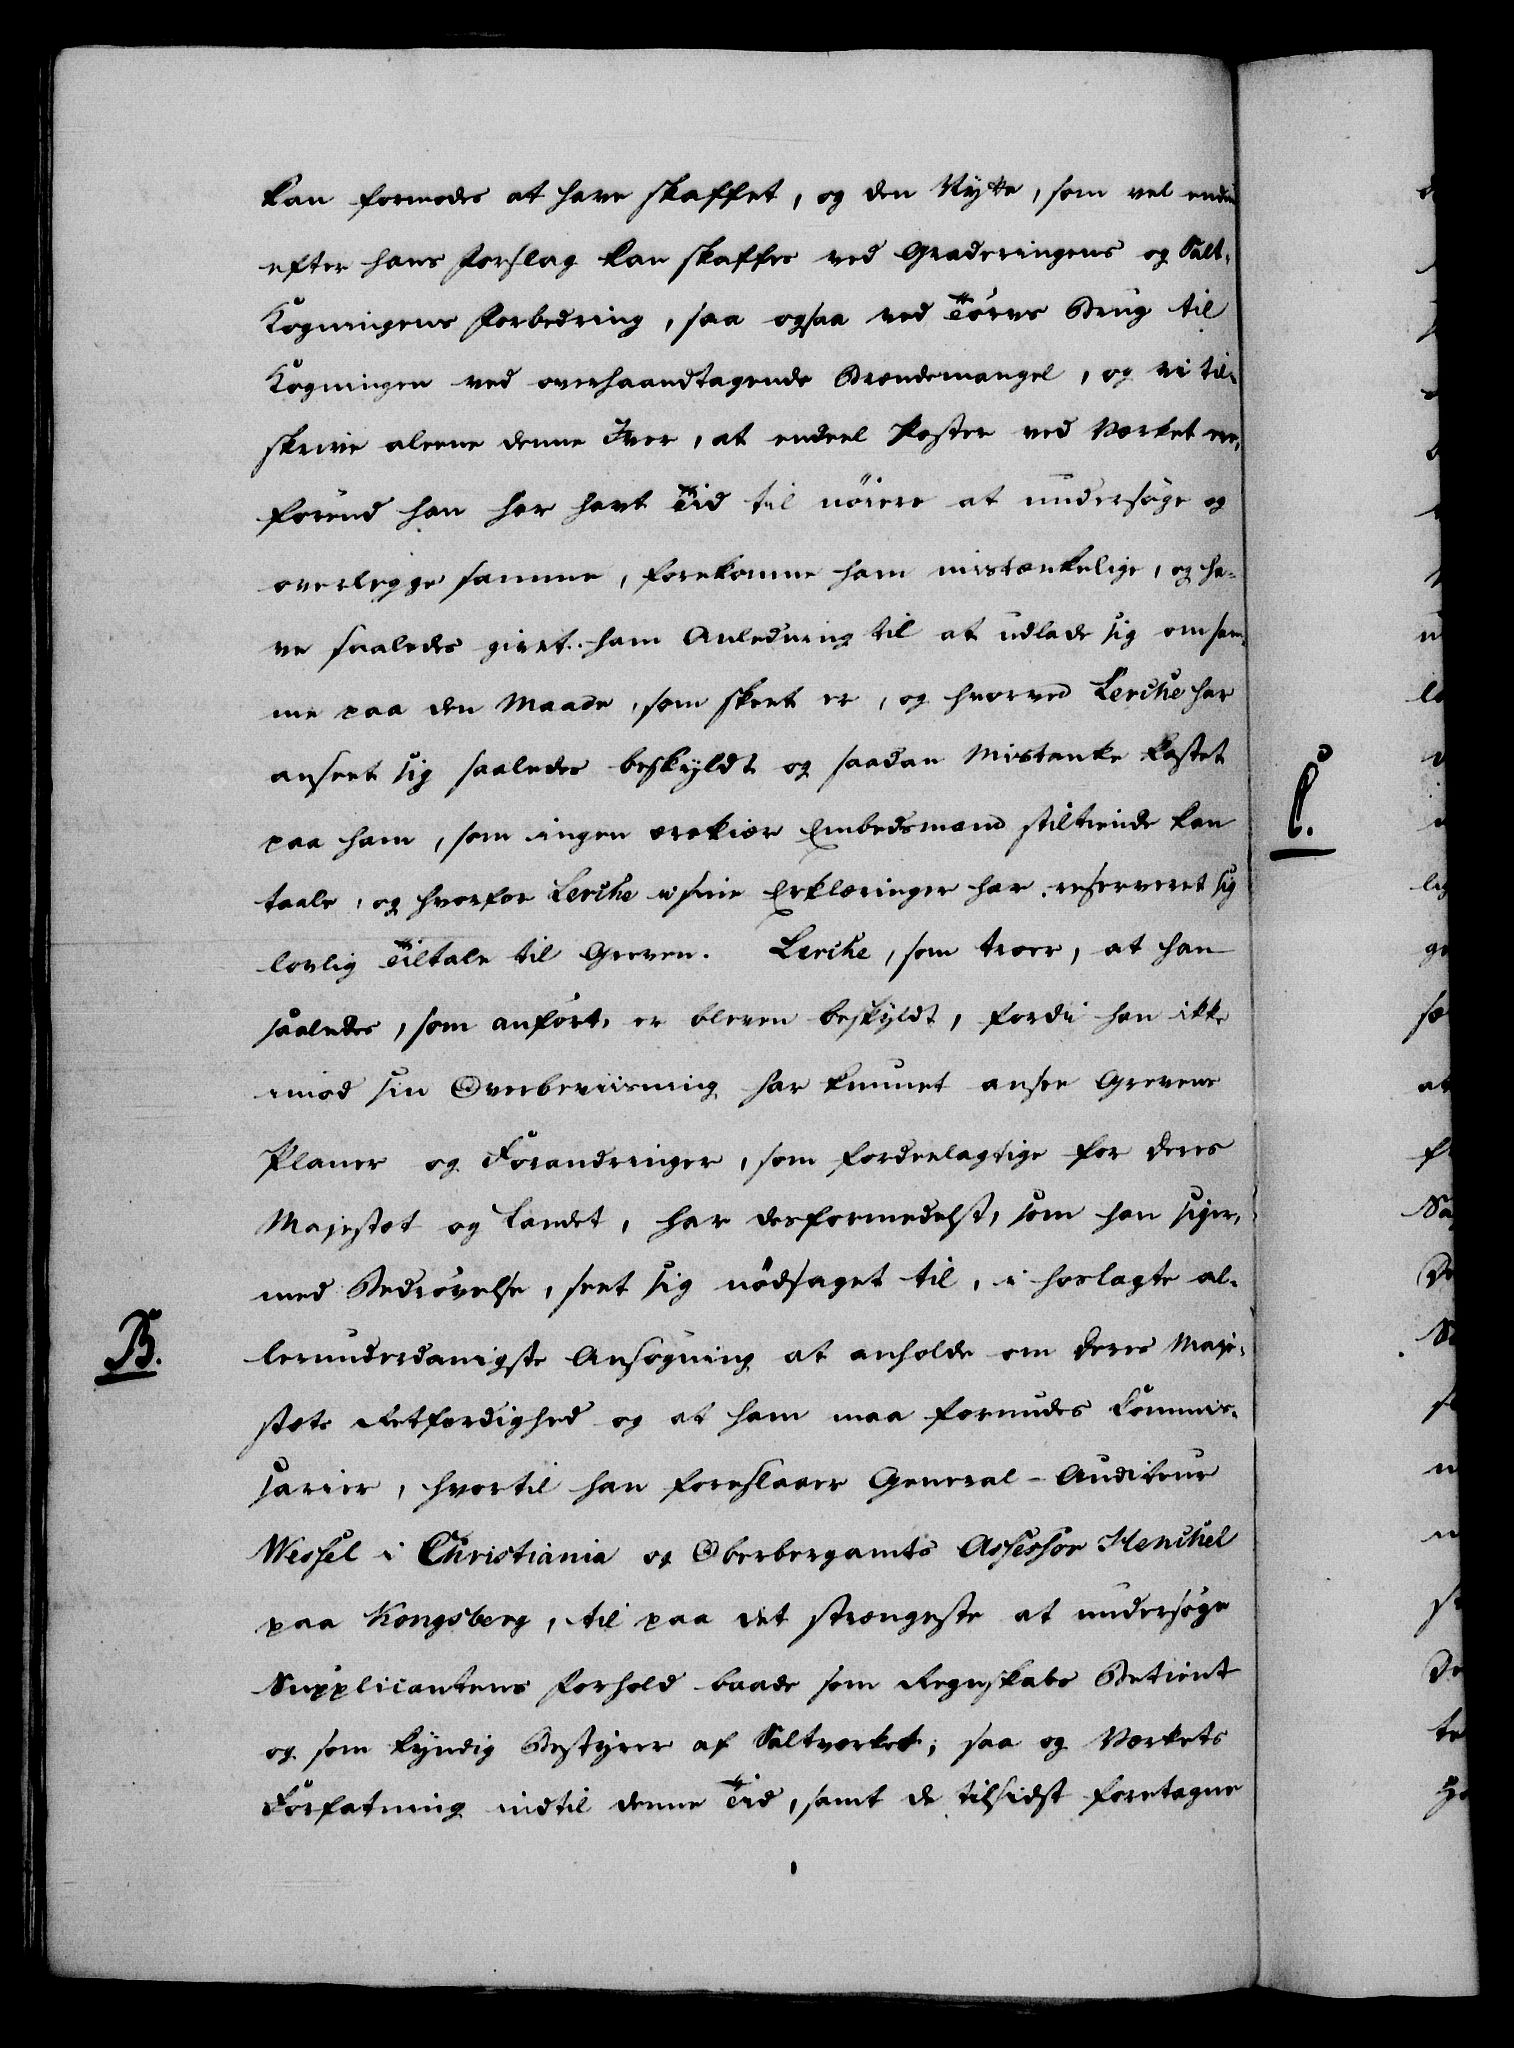 kan formodes at have skaffet, og den Nytte, som vel endnu
efter hans Forslag kan skaffes ved Graderingens og Salt-
Kogningens Forbedring, saa ogsaa ved Törvs Brug til
Kogningen ved overhaandtagende Brændemangel, og vi til-
skrive aleene denne Iver, at endeel Poster ved Værket ere,
forend han har havt Tid til nöiere at undersöge og
overlegge samme, forekomne ham mistænkelige, og ha-
ve saaledes givet ham Anledning til at udlade sig om sam-
me paa den Maade, som skeet er, og hvorved Lerche har
anseet sig saaledes beskyldt og saadan Mistanke kastet
paa ham, som ingen ærekiær Embedsmand stiltiende kan
taale, og hvorfor Lerche i sine Erklæringer har reserveret sig
lovlig Tiltale til Greven. Lerche, som troer, at han
saaledes, som anfört, er bleven beskyldt, fordi han ikke
imod sin Overbeviisning har kunnet ansee Grevens
Planer og Forandringer, som fordeelagtige for Deres
Majestæt og Landet, har desformedelst, som han siger,
med Bedrövelse, seet sig nödsaget til, i hoslagte al-
B.
lerunderdanigste Ansögning at anholde om Deres Maje-
stæts Retfærdighed og at ham maa forundes Commis-
sarier, hvortil han foreslaaer General-Auditeur
Wessel i Christiania og Oberbergamts Assessor Henckel
paa Kongsberg, til paa det strængeste at undersöge
Supplicantens Forhold baade som Regnskabs Betient
og som kyndig Bestyrer af Saltværket, saa og Værkets
Forfatning indtil denne Tid, samt de tilsidst foretagne
C.